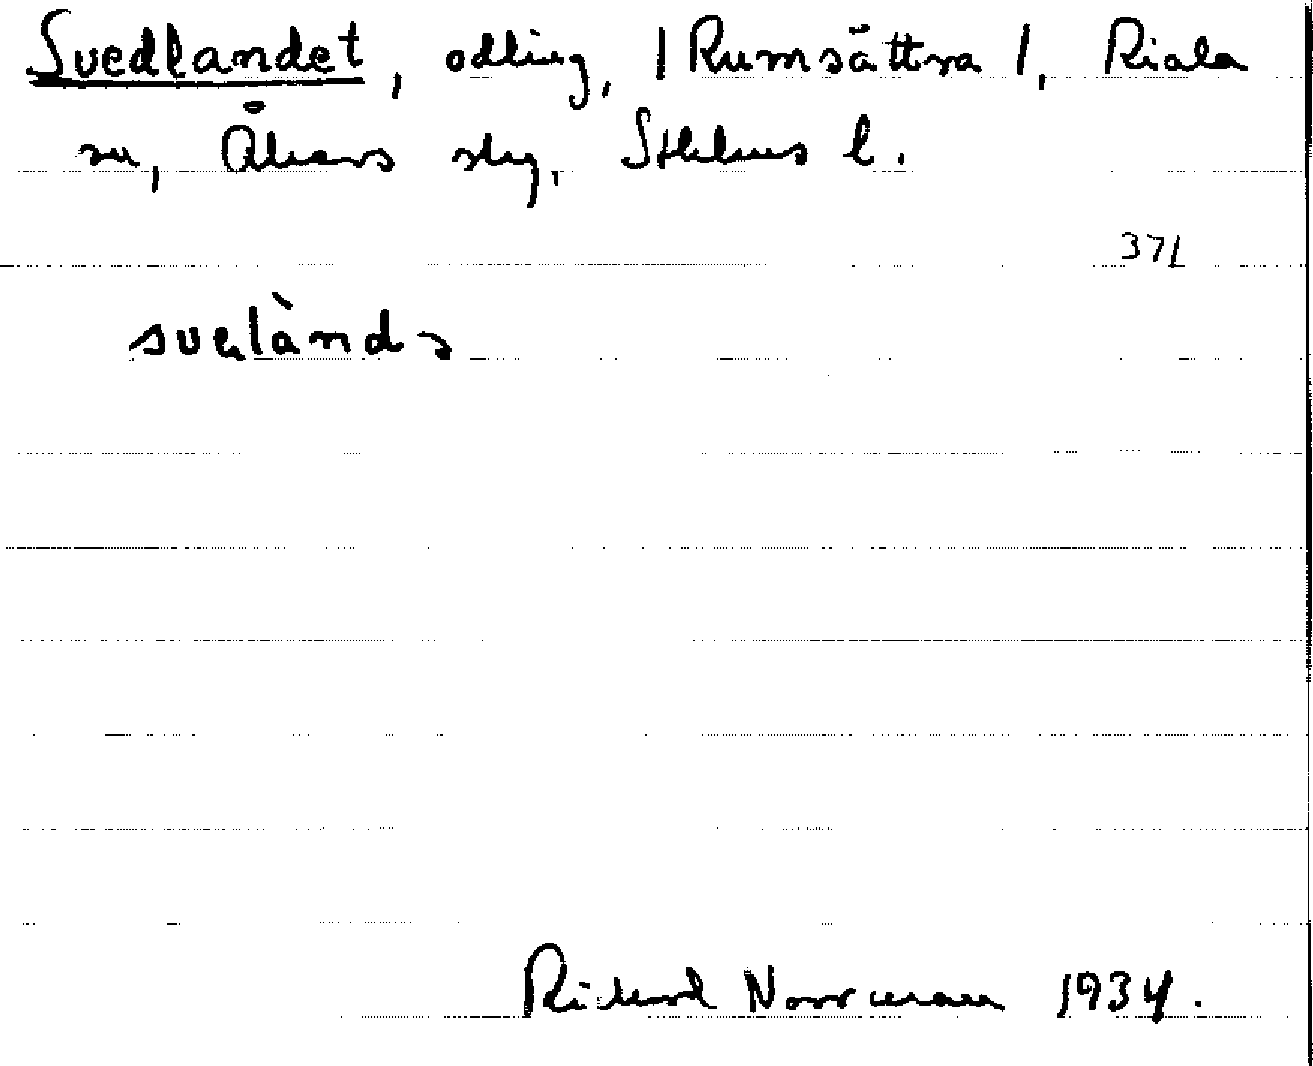 Svedlandet, odling, /Rumsättra/, Riala
sn, Åkers skg, Sthlms l.
371
sveländə
Rickard Norrman 1934.